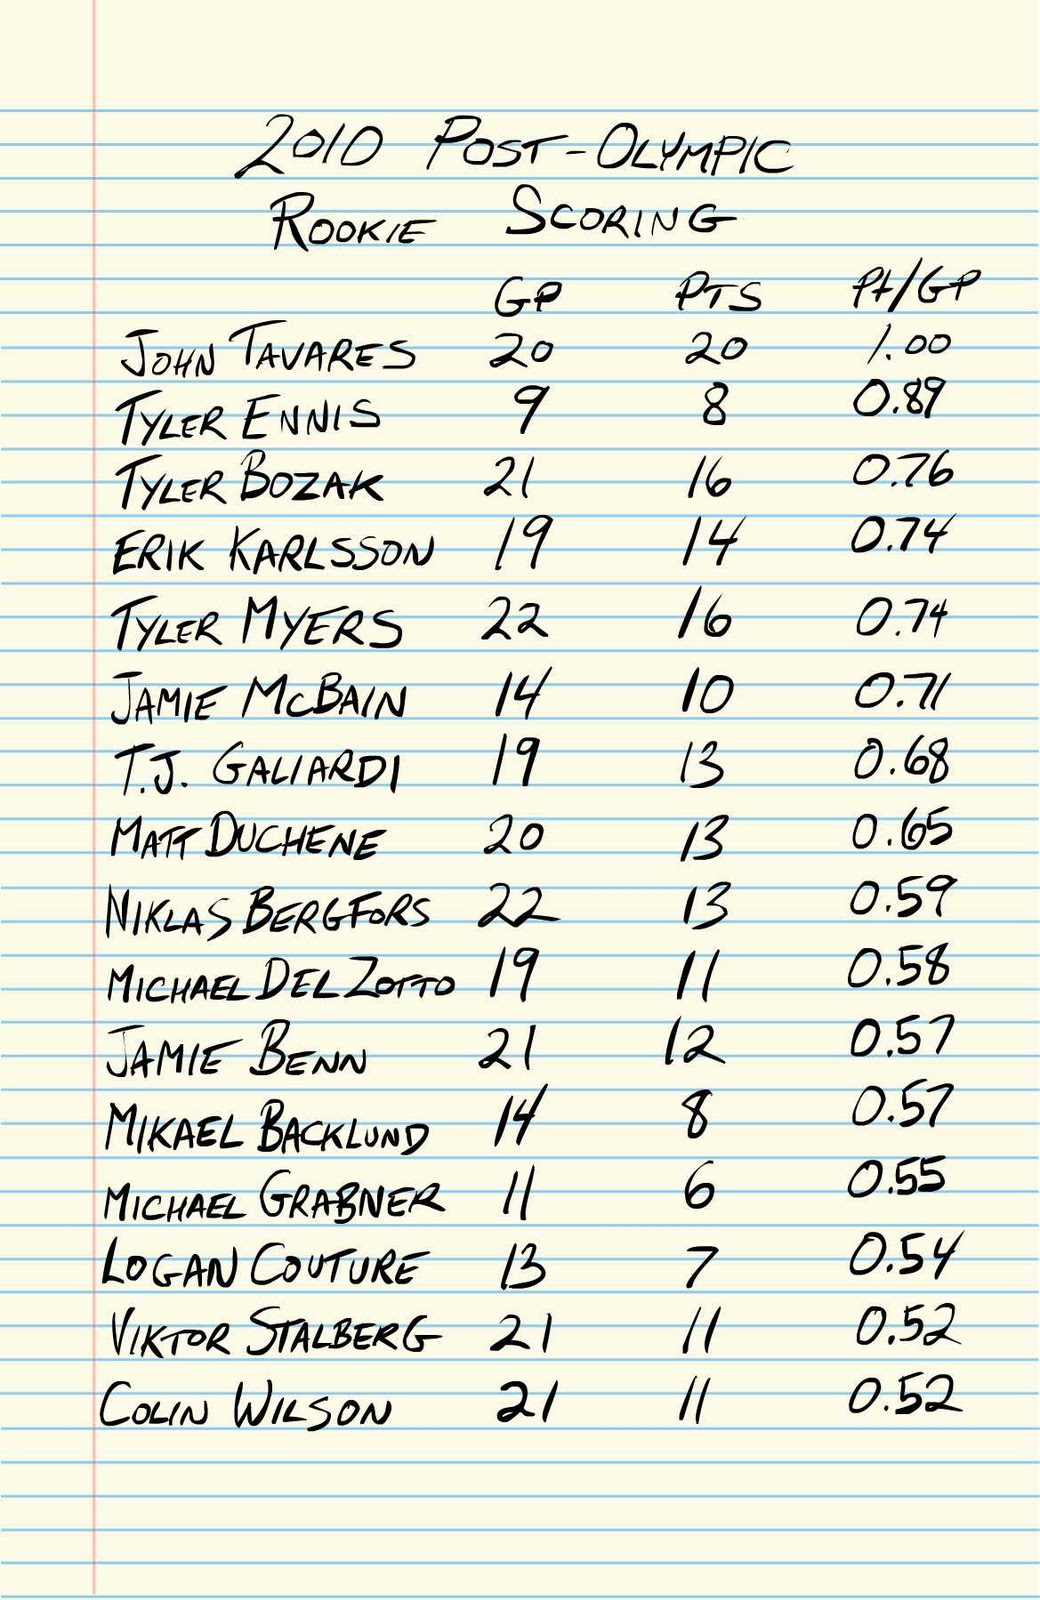 2010 POST-OLYMPIC
ROOKIE SCORING
GP PTS Pt/GP
JOHN TAVARES 20 20 1.00
TYLER ENNIS 9 8 0.89
TYLER BOZAK 21 16 0.76
ERIK KARLSSON 19 14 0.74
TYLER MYERS 22 16 0.74
JAMIE MCBAIN 14 10 0.71
T.J. GALIARDI 19 13 0.68
MATT DUCHENE 20 13 0.65
NIKLAS BERGFORS 22 13 0.59
MICHAEL DEL ZOTTO 19 11 0.58
JAMIE BENN 21 12 0.57
MIKAEL BACKLUND 14 8 0.57
MICHAEL GRABNER 11 6 0.55
LOGAN COUTURE 13 7 0.54
VIKTOR STALBERG 21 11 0.52
COLIN WILSON 21 11 0.52